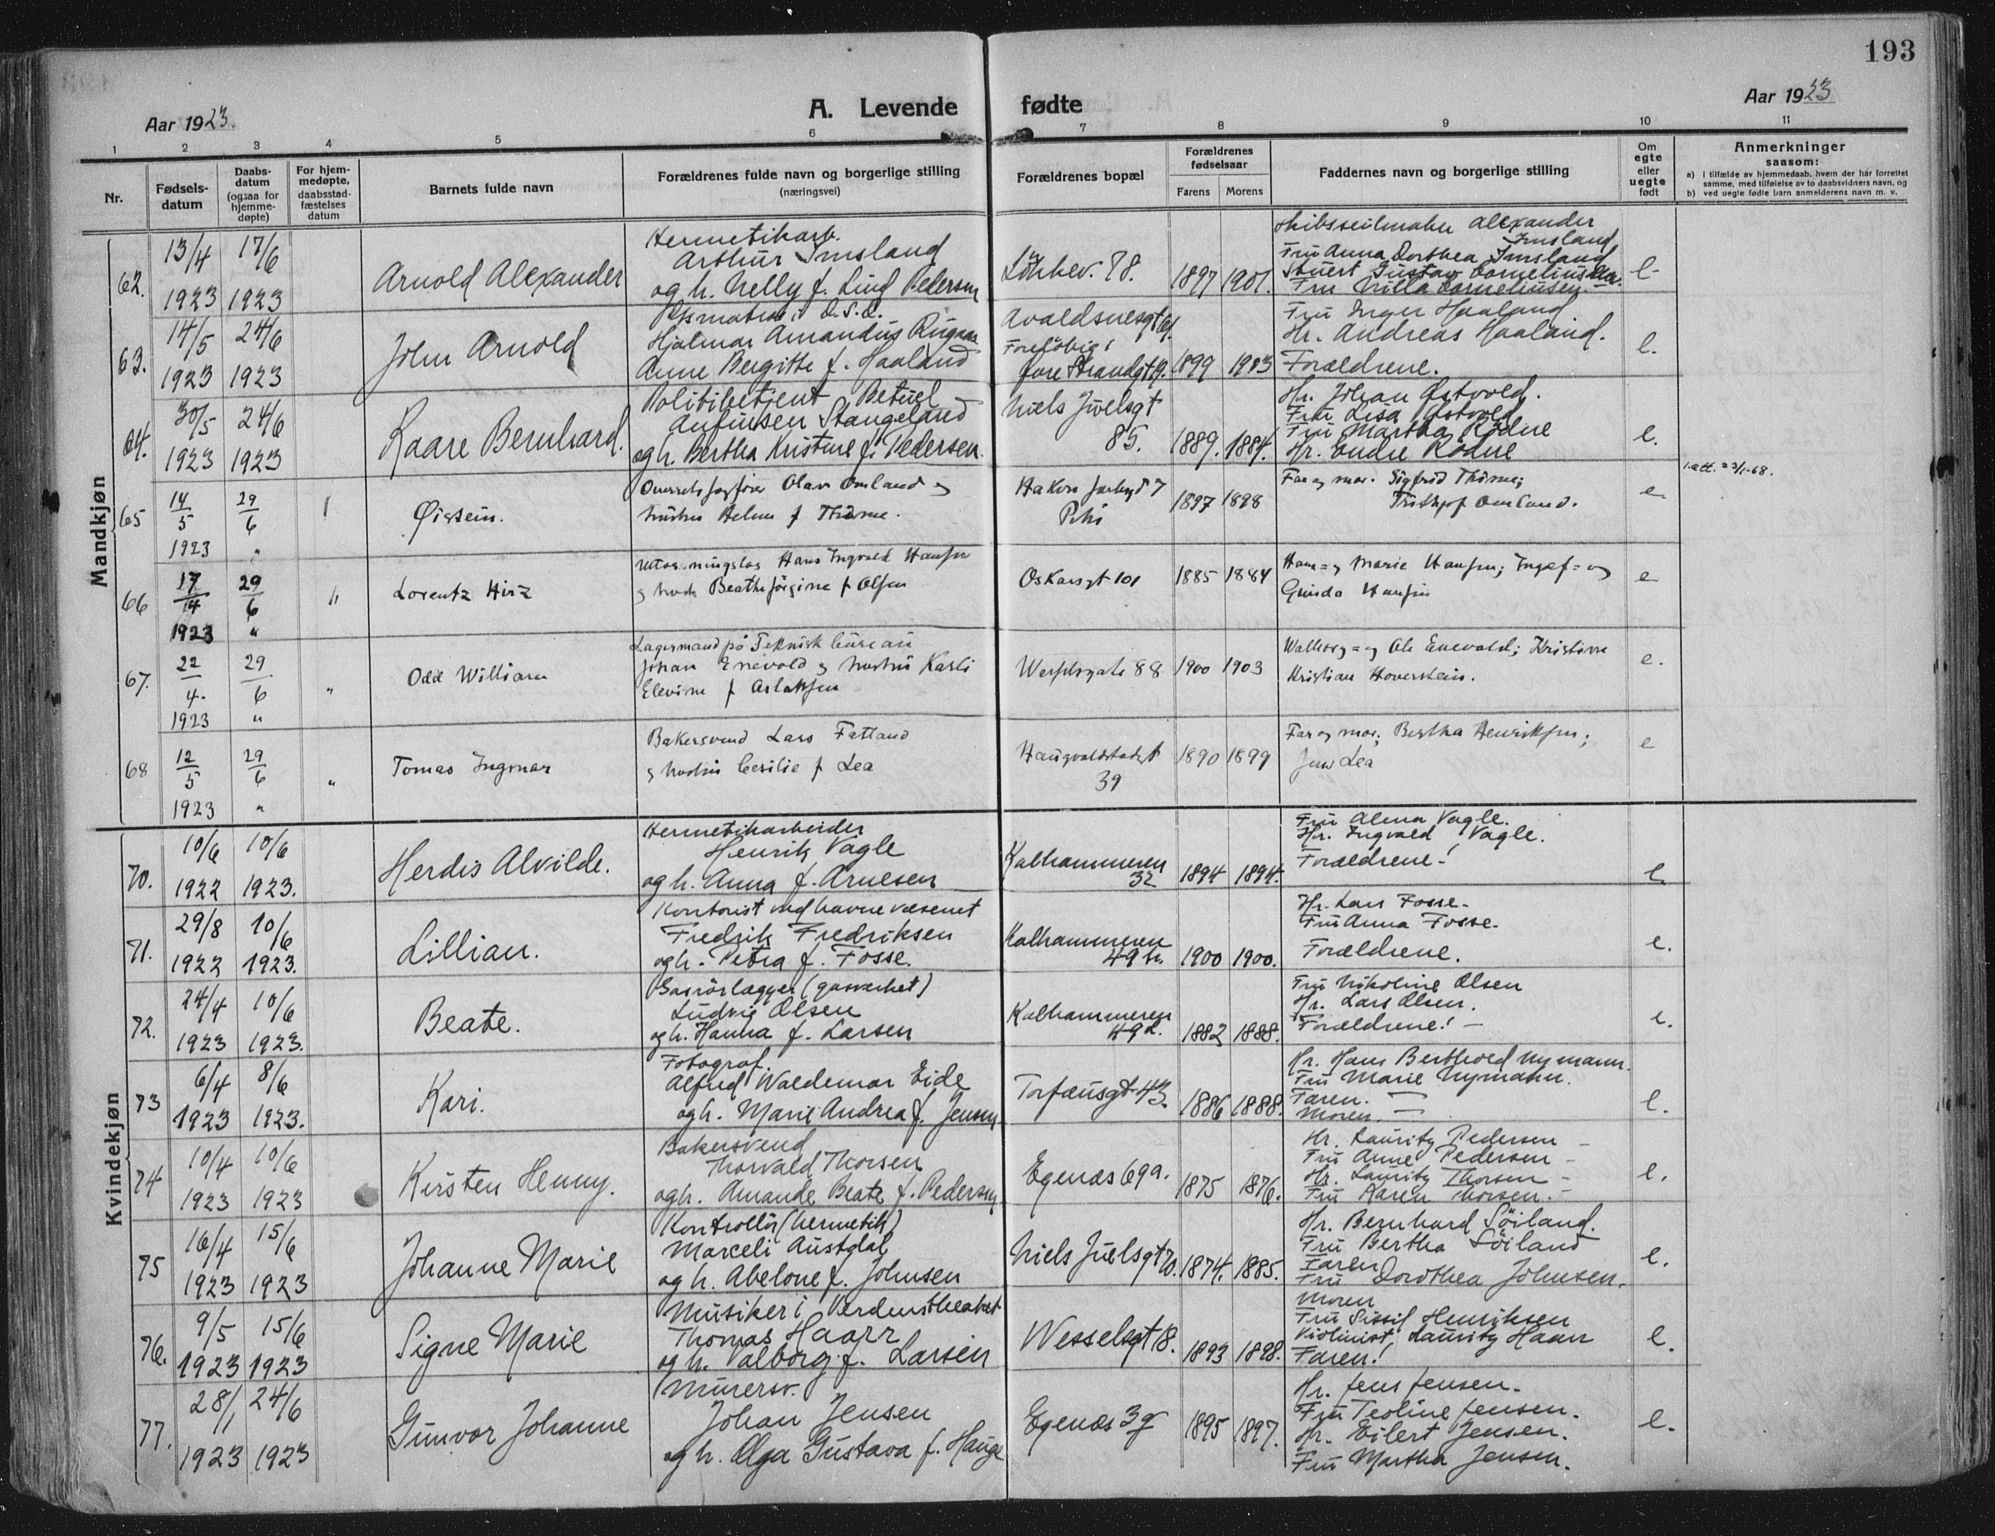 193
Aar 1923.
A. Levende fødte
Aar 1923
1 2 3 4 5 6 7 8 9 10 11
Nr.
Fødsels-
datum
Daabs-
datum
(ogsaa for
hjemme-
døpte)
For hjem-
medøpte,
daabsstad-
fæstelses
datum
Barnets fulde navn
Forældrenes fulde navn og borgerlige stilling
(næringsvei)
Forældrenes bopæl
Forældrenes
fødselsaar
Farens Morens
Faddernes navn og borgerlige stilling
Om
egte
eller
uegte
født
Anmerkninger
saasom:
a) I tilfælde av hjemmedaab, hvem der har forrettet
samme, med tilføielse av to daabsvidners navn, og
b) ved uegte fødte barn anmelderens navn m. v.
Mandkjøn
62.
13/4 1923
17/6 1923
Arnold Alexander
Hermetikarb.
Arthur Imsland
og h. Nelly f. Lind Pedersen
78.
1897 1901.
Alexander
Imsland
Fru Anna Dorthea Imsland
Stuert Gustav Corneliussen
Fru Milla Corneliussen.
e.
63.
14/5 1923
24/6 1923
John Arnold
D.S.D.
Hjalmar Amandus
Anne Bergitte f. Haaland
Avaldsnesgt
Foreløbig:
Strandgt 9.
1899 1903
Fru Inger Haaland
Hr. Andreas Haaland.
Forældrene.
e.
64.
30/5 1923
24/6 1923
Kaare Bernhard.
Politibetjent Betuel
Anfinsen Stangeland
og h. Bertha Kristine f. Pedersen.
Niels Juelsgt
85.
1889. 1884.
Hr. Johan Østvold.
Fru Lisa Østvold
Fru Martha Rödne
Hr. Endre Rödne
e.
65
14/5 1923
29/6 "
Øistein.
Olav Omland og
hustru f Thime.
Hakon 7
1897 1898
Far og mor. Sigfrid Thime;
Omland.
e
1.att. 23/1-68.
66
17/4 1923
29/6 "
"
Lorentz
Hans Ingvald Hansen
og hustr Beathe Jörgine f Olsen
Oskarsgt 101
1885 1884
Hans = og Marie Hansen; = og
Hansen
e
67.
22/4. 1923
29/6 "
"
Odd William
Lagermand på Teknisk bureau
Johan Enevold og hustru
Elevine f Aslaksen
88
1900 1903
Walborg = og Ole Enevald; Kristine
Kristian Hoverstein.
e.
68
12/5 1923
29/6 "
"
Tomas Ingmar
Bakersvend Lars Fatland
og hustru Cesilie f Lea
39
1890 1899
Far og mor; Bertha Henriksen;
Lea
e
Kvindekjøn
70.
10/6 1922
10/6 1923.
Herdis Alvilde.
Hermetikarbeider
Henrik Vagle
og h. Anna f. Arnesen
Kalhammeren
32
1894 1894.
Fru Alma Vagle.
Hr. Ingvald Vagle.
Forældrene!
e.
71.
29/8 1922
10/6 1923.
Lillian.
Kontorist ved havnevæsenet
Fredrik Fredriksen
og h. Petra f. Fosse.
Kalhammeren
1900 1900.
Hr. Lars Fosse.
Fru Anna Fosse.
Forældrene.
e.
72.
24/4 1923
10/6 1923.
Beate.
Gasrörlægger (gasverket)
Ludvig Olsen
og h. Hanna f. Larsen
Kalhammeren
1882 1888.
Fru Nikoline Olsen
Hr. Lars Olsen.
Forældrene! —
e.
73
6/4 1923
8/6 1923.
Kari.
Fotograf.
Alfred Waldemar Eide
og h. Marie Andrea f. Jensen
Torfæusgt 43.
1886 1888.
Hr. Hans Berthold Nymann.
Fru Marie Nymann.
Faren. —
Moren. —
e.
74
10/4 1923
10/6 1923
Kirsten Henny.
Bakersvend
Thorvald Thorsen
og h. Amande Beate f. Pedersen
Egenæs 69a.
1875 1876.
Hr. Lauritz Pedersen —
Fru Anne Pedersen —
Hr. Lauritz Thorsen —
Fru Karen Thorsen. —
e.
75
16/4 1923
15/6 1923
Johanne Marie
Kontrollör (hermetik)
Marceli Austdal
og h. Abelone f. Johnsen
Niels Juelsgt 70.
1874. 1885.
Hr. Bernhard Söiland.
Fru Bertha Söiland
Faren
Fru Dorothea Johnsen.
e.
76.
9/5 1923
15/6 1923
Signe Marie
Musiker i Verdenstheatret
Thomas Haarr
og h. Valborg f. Larsen
Wesselsgt 18.
1893 1898.
Moren
Fru Sissil Henriksen
Violinist Lauritz Haarr
Faren!
e.
77.
28/1 1923
24/6 1923
Gunvor Johanne
Murersv.
Johan Jensen
og h. Olga Gustava f. Hauge
Egenæs 39
1895 1897.
Hr. Jens Jensen.
Fru Teoline Jensen.
Hr. Eilert Jensen.
Fru Martha Jensen.
e.